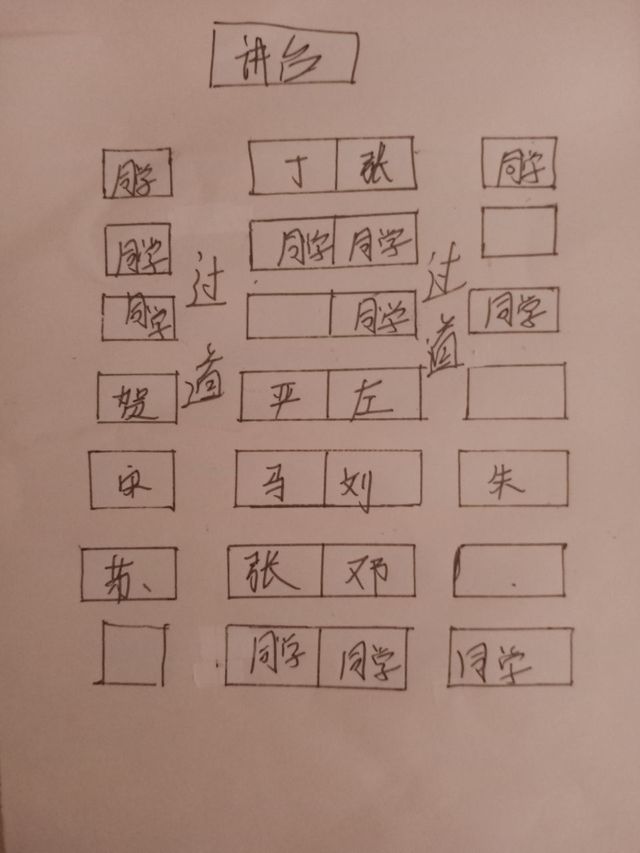 讲台
同学 丁 张 同学
同学 同学 同学
过 过
同学 同学 同学
道 道
贺 严 左
宋 马 刘 朱
苏 张 邓
同学 同学 同学